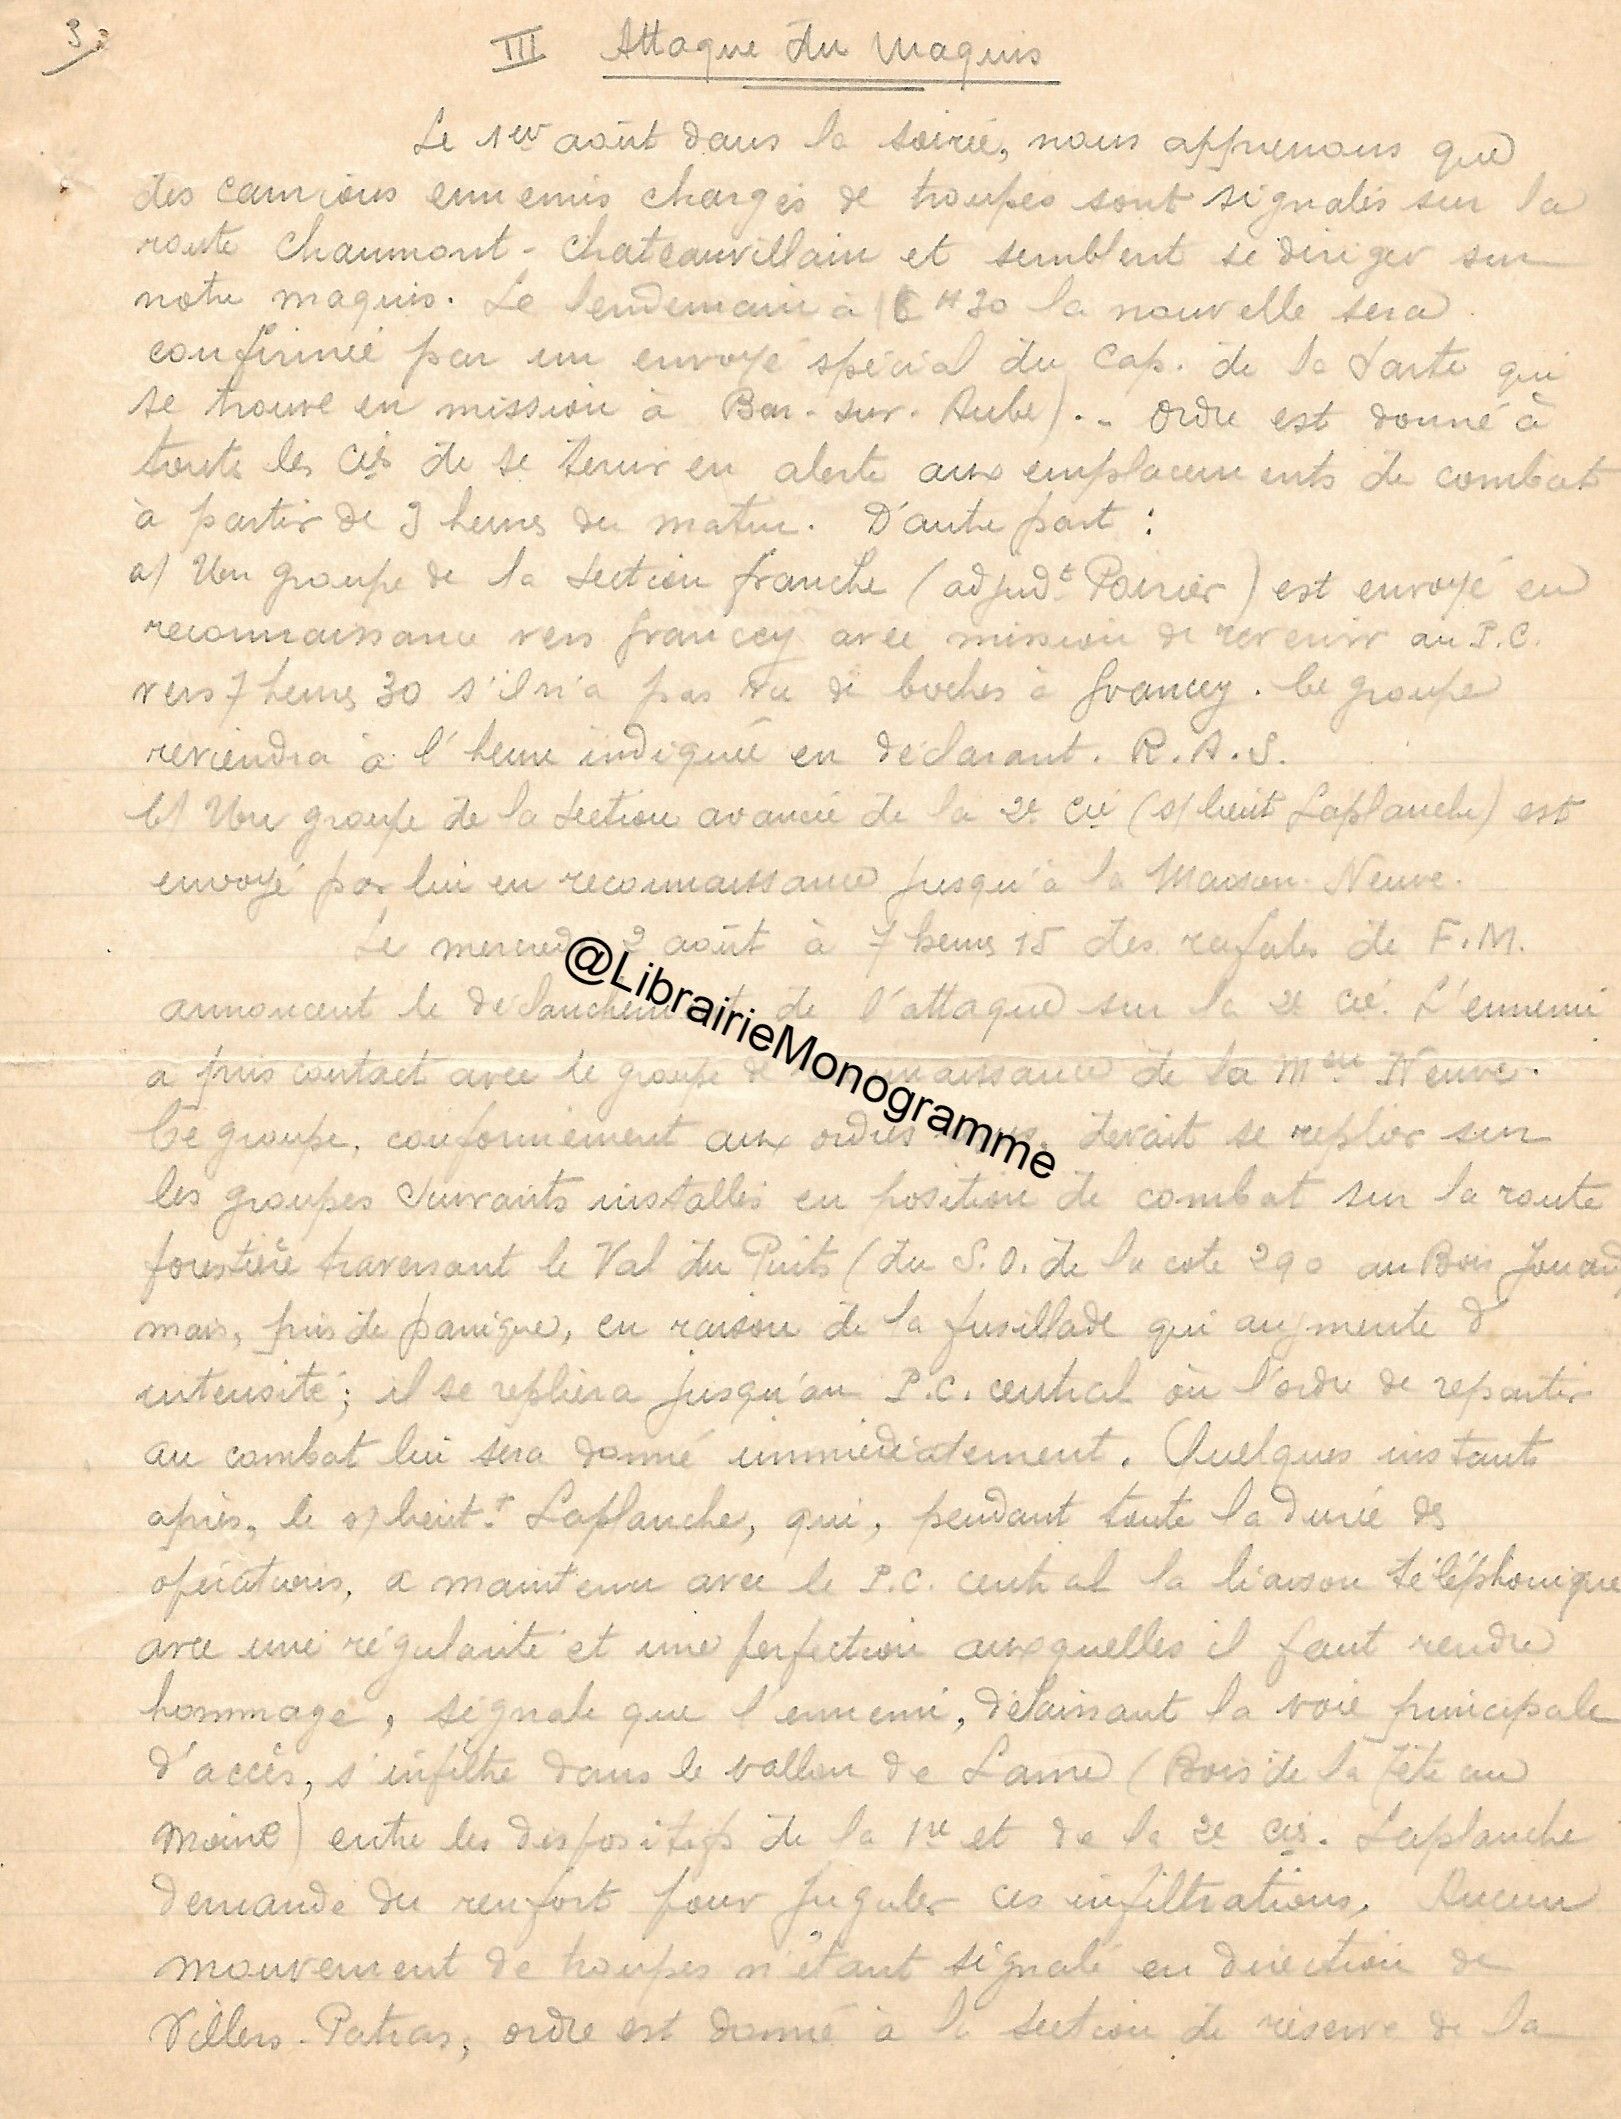 3
III Attaque du Maquis
Le 1er août dans la soirée, nous apprenons que
des camions ennemis chargés de troupes sont signalés sur la
route Chaumont - Chateauvillain et semblent se diriger sur
notre maquis. Le lendemain à H30 la nouvelle sera
confirmée par un envoyé spécial du Cap. de la qui
se trouve en mission à Bar-sur-Aube). - Ordre est donné à
toute les Cies de se tenir en alerte aux emplacements de combat
à partir de 3 heures du matin. D'autre part :
a/ Un groupe de la section franche (adjudt Poirier) est envoyé en
reconnaissance vers francey avec mission de revenir au P.C.
vers 7 heures 30 s'il n'a pas vu de boches à francey. Ce groupe
reviendra à l'heure indiquée en déclarant. R.A.S.
b/ Un groupe de la section avancée de la 2e Cie (s/lieut Laplanche) est
envoyé par lui en reconnaissance jusqu'à la Maison-Neuve.
Le mercredi 2 août à 7 heures 15 des rafales de F.M.
annoncent le déclanchement de l'attaque sur la 2e Cie. L'ennemi
a pris contact avec le groupe de reconnaissance de la Mon Neuve.
Ce groupe, conformément aux ordres devait se replier sur
les groupes suivants installés en position de combat sur la route
forestière traversant le Val du Puits (du S.O. de la cote 290 au Bois
mais, pris de panique, en raison de la fusillade qui augmente d'
intensité; il se repliera jusqu'au P.C. central où l'ordre de repartir
au combat lui sera donné immédiatement. Quelques instants
après, le s/lieutt Laplanche, qui, pendant toute la durée des
opérations, a maintenu avec le P.C. central la liaison téléphonique
avec une régularité et une perfection auxquelles il faut rendre
hommage, signale que l'ennemi, délaissant la voie principale
d'accès, s'infiltre dans le vallon de Lame (Bois de la Tête au
Moine) entre les dispositifs de la 1re et de la 2e Cies. Laplanche
demande du renfort pour juguler ces infiltrations. Aucun
mouvement de troupes n'étant signalé en direction de
Villers-Patras, ordre est donné à la section de réserve de la
@LibrairieMonogramme